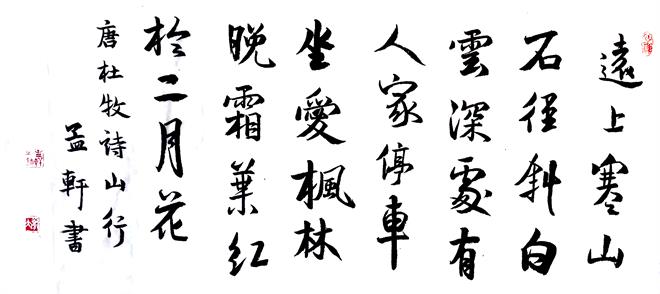 遠上寒山
石徑斜白
雲深處有
人家停車
坐愛楓林
晚霜葉紅
於二月花
唐杜牧詩山行
孟軒書